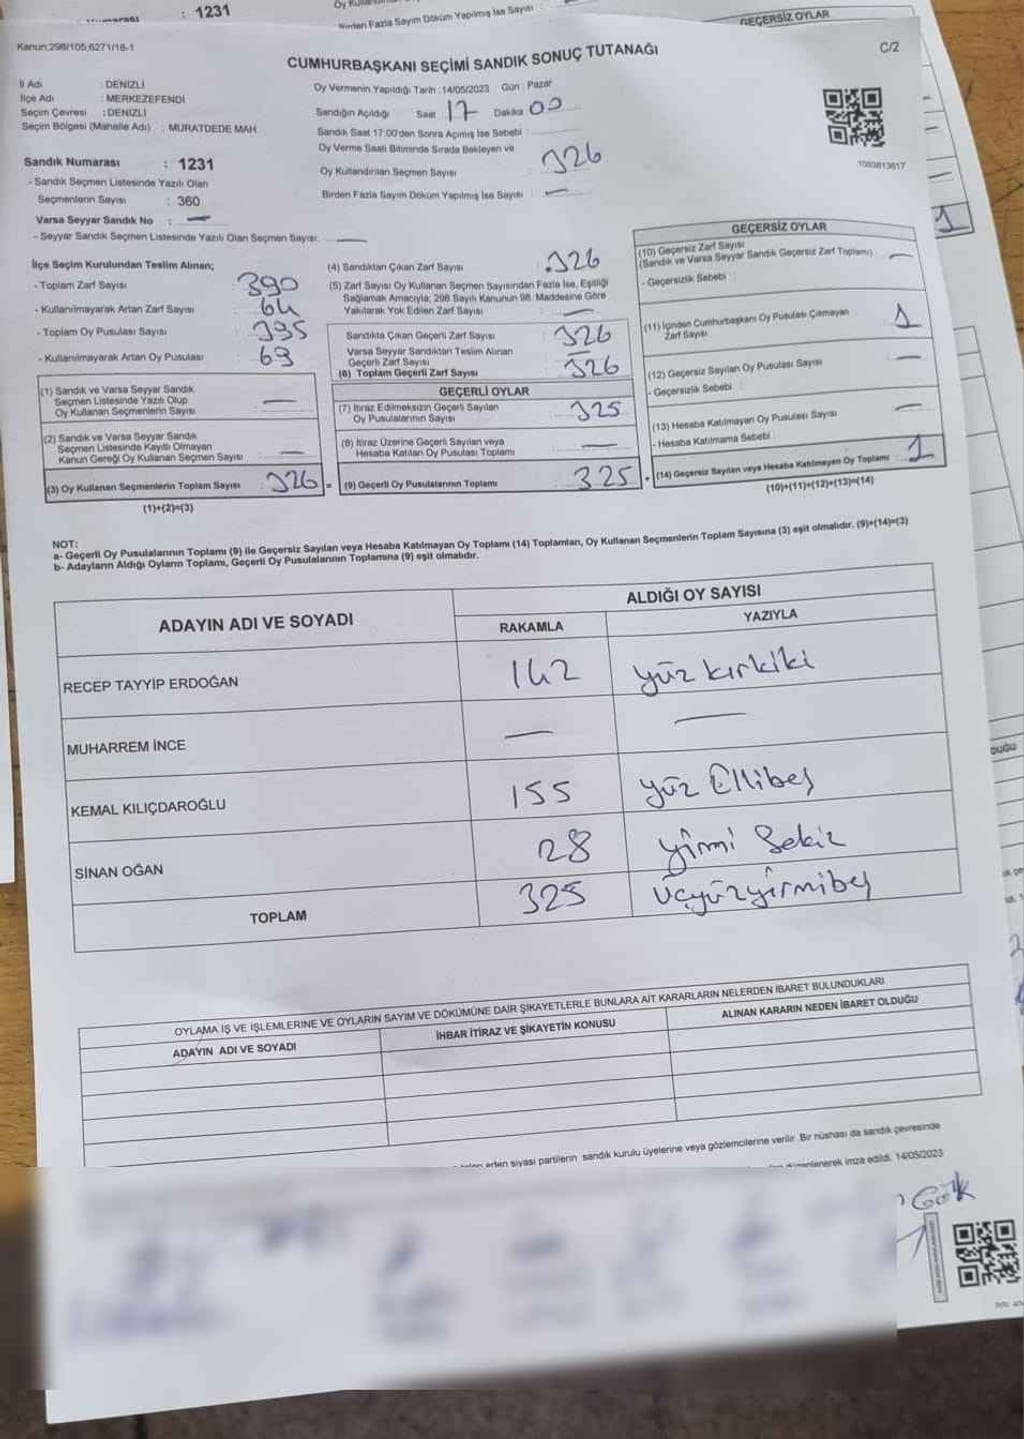 : 1231
Birden Fazla Sayım Döküm Yapılmış İse Sayısı :
GEÇERSİZ OYLAR
Kanun:298/105;6271/18-1
CUMHURBAŞKANI SEÇİMİ SANDIK SONUÇ TUTANAĞI
C/2
İl Adı : DENİZLİ
İlçe Adı : MERKEZEFENDİ
Seçim Çevresi : DENİZLİ
Seçim Bölgesi (Mahalle Adı) : MURATDEDE MAH.
Oy Vermenin Yapıldığı Tarih : 14/05/2023 Gün : Pazar
Sandığın Açıldığı Saat : 17 Dakika 00
Sandık Saat 17:00'den Sonra Açımış İse Sebebi :
Oy Verme Saati Bitiminde Sırada Bekleyen ve
Oy Kullandırılan Seçmen Sayısı : 326
Birden Fazla Sayım Döküm Yapılmış İse Sayısı : —
1093813617
Sandık Numarası : 1231
- Sandık Seçmen Listesinde Yazılı Olan
Seçmenlerin Sayısı : 360
Varsa Seyyar Sandık No : —
- Seyyar Sandık Seçmen Listesinde Yazılı Olan Seçmen Sayısı: —
İlçe Seçim Kurulundan Teslim Alınan;
- Toplam Zarf Sayısı : 390
- Kullanılmayarak Artan Zarf Sayısı : 64
- Toplam Oy Pusulası Sayısı : 395
- Kullanılmayarak Artan Oy Pusulası : 69
(1) Sandık ve Varsa Seyyar Sandık
Seçmen Listesinde Yazılı Olup
Oy Kullanan Seçmenlerin Sayısı —
(2) Sandık ve Varsa Seyyar Sandık
Seçmen Listesinde Kayıtlı Olmayan
Kanun Gereği Oy Kullanan Seçmen Sayısı —
(3) Oy Kullanan Seçmenlerin Toplam Sayısı 326 =
(1)+(2)=(3)
(4) Sandıktan Çıkan Zarf Sayısı : 326
(5) Zarf Sayısı Oy Kullanan Seçmen Sayısından Fazla İse, Eşitliği
Sağlamak Amacıyla; 298 Sayılı Kanunun 98. Maddesine Göre
Yakılarak Yok Edilen Zarf Sayısı : —
Sandıkta Çıkan Geçerli Zarf Sayısı 326
Varsa Seyyar Sandıktan Teslim Alınan
Geçerli Zarf Sayısı —
(6) Toplam Geçerli Zarf Sayısı 326
GEÇERLİ OYLAR
(7) İtiraz Edilmeksizin Geçerli Sayılan
Oy Pusulalarının Sayısı 325
(8) İtiraz Üzerine Geçerli Sayılan veya
Hesaba Katılan Oy Pusulası Toplamı —
(9) Geçerli Oy Pusulalarının Toplamı 325 +
GEÇERSİZ OYLAR
(10) Geçersiz Zarf Sayısı
(Sandık ve Varsa Seyyar Sandık Geçersiz Zarf Toplamı) —
- Geçersizlik Sebebi :
(11) İçinden Cumhurbaşkanı Oy Pusulası Çıkmayan
Zarf Sayısı 1
(12) Geçersiz Sayılan Oy Pusulası Sayısı —
- Geçersizlik Sebebi
(13) Hesaba Katılmayan Oy Pusulası Sayısı —
- Hesaba Katılmama Sebebi
(14) Geçersiz Sayılan veya Hesaba Katılmayan Oy Toplamı 1
(10)+(11)+(12)+(13)=(14)
1
NOT:
a- Geçerli Oy Pusulalarının Toplamı (9) ile Geçersiz Sayılan veya Hesaba Katılmayan Oy Toplamı (14) Toplamları, Oy Kullanan Seçmenlerin Toplam Sayısına (3) eşit olmalıdır. (9)+(14)=(3)
b- Adayların Aldığı Oyların Toplamı, Geçerli Oy Pusulalarının Toplamına (9) eşit olmalıdır.
ADAYIN ADI VE SOYADI
ALDIĞI OY SAYISI
RAKAMLA YAZIYLA
RECEP TAYYİP ERDOĞAN 142 yüz kırkiki
MUHARREM İNCE — —
KEMAL KILIÇDAROĞLU 155 yüz Ellibeş
SİNAN OĞAN 28 yirmi Sekiz
TOPLAM 325 üçyüzyirmibeş
OYLAMA İŞ VE İŞLEMLERİNE VE OYLARIN SAYIM VE DÖKÜMÜNE DAİR ŞİKAYETLERLE BUNLARA AİT KARARLARIN NELERDEN İBARET BULUNDUKLARI
ADAYIN ADI VE SOYADI İHBAR İTİRAZ VE ŞİKAYETİN KONUSU ALINAN KARARIN NEDEN İBARET OLDUĞU
eden siyasi partilerin sandık kurulu üyelerine veya gözlemcilerine verilir. Bir nüshası da sandık çevresinde
imza edildi. 14/05/2023